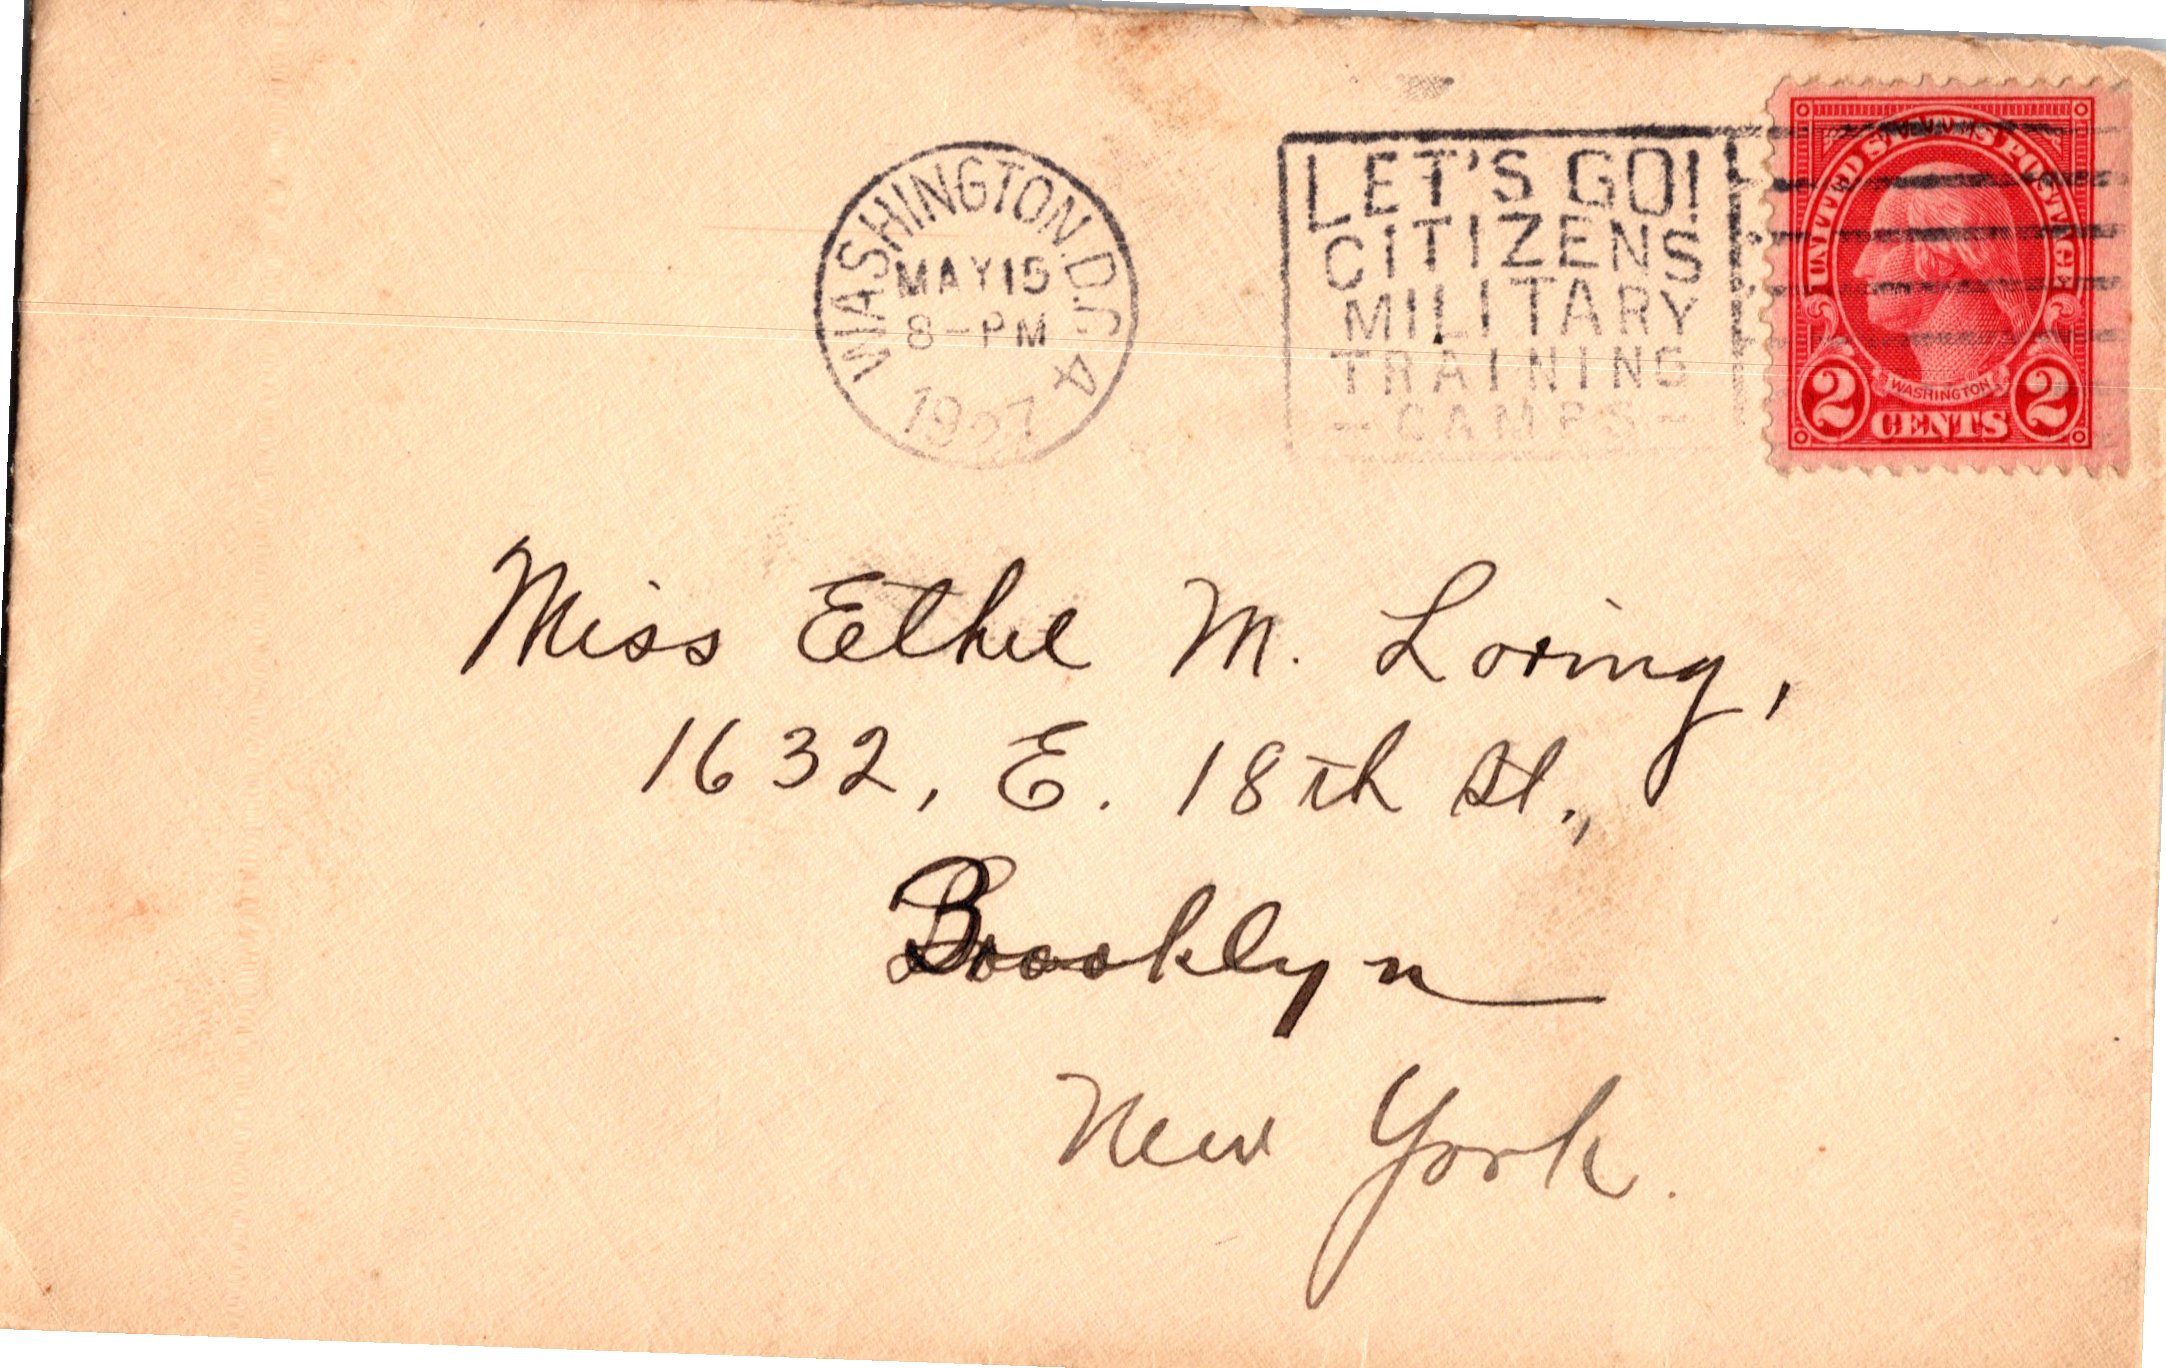 WASHINGTON, D.C. 4
MAY 15
8-PM
1927
LET'S GO!
CITIZENS
MILITARY
TRAINING
-CAMPS-
UNITED STATES POSTAGE
WASHINGTON
2 CENTS 2
Miss Ethel M. Loring,
1632, E. 18th St.,
Brooklyn
New York.